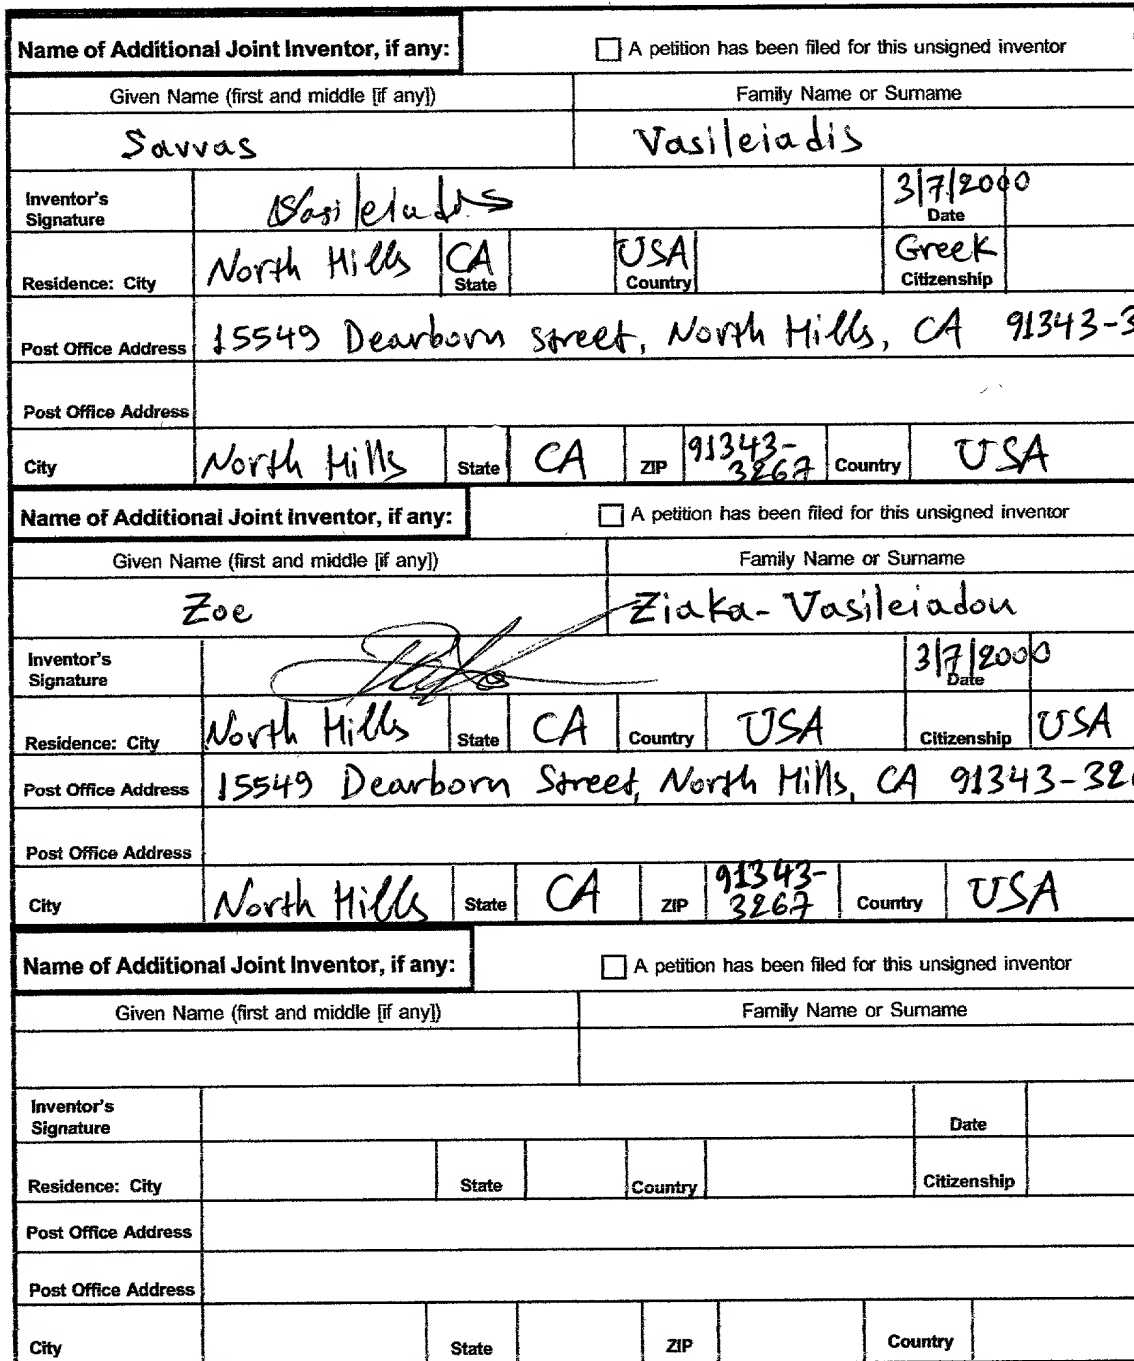 Name of Additional Joint Inventor, if any: A petition has been filed for this unsigned inventor
Given Name (first and middle [if any]) Family Name or Surname
Savvas Vasileiadis
Inventor's Signature Vasileiadis 3/7/2000 Date
Residence: City North Hills CA State USA Country Greek Citizenship
Post Office Address 15549 Dearborn street, North Hills, CA 91343-3
Post Office Address
City North Hills State CA ZIP 91343-3267 Country USA
Name of Additional Joint Inventor, if any: A petition has been filed for this unsigned inventor
Given Name (first and middle [if any]) Family Name or Surname
Zoe Ziaka-Vasileiadou
Inventor's Signature 3/7/2000 Date
Residence: City North Hills State CA Country USA Citizenship USA
Post Office Address 15549 Dearborn Street, North Hills, CA 91343-32
Post Office Address
City North Hills State CA ZIP 91343-3267 Country USA
Name of Additional Joint Inventor, if any: A petition has been filed for this unsigned inventor
Given Name (first and middle [if any]) Family Name or Surname
Inventor's Signature Date
Residence: City State Country Citizenship
Post Office Address
Post Office Address
City State ZIP Country